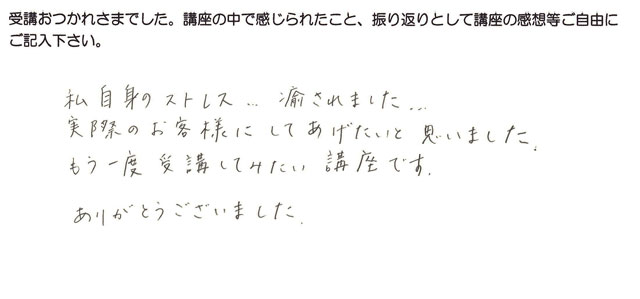 受講おつかれさまでした。講座の中で感じられたこと、振り返りとして講座の感想等ご自由に
ご記入下さい。
私自身のストレス… 癒されました…
実際のお客様にしてあげたいと思いました。
もう一度受講してみたい講座です。
ありがとうございました。